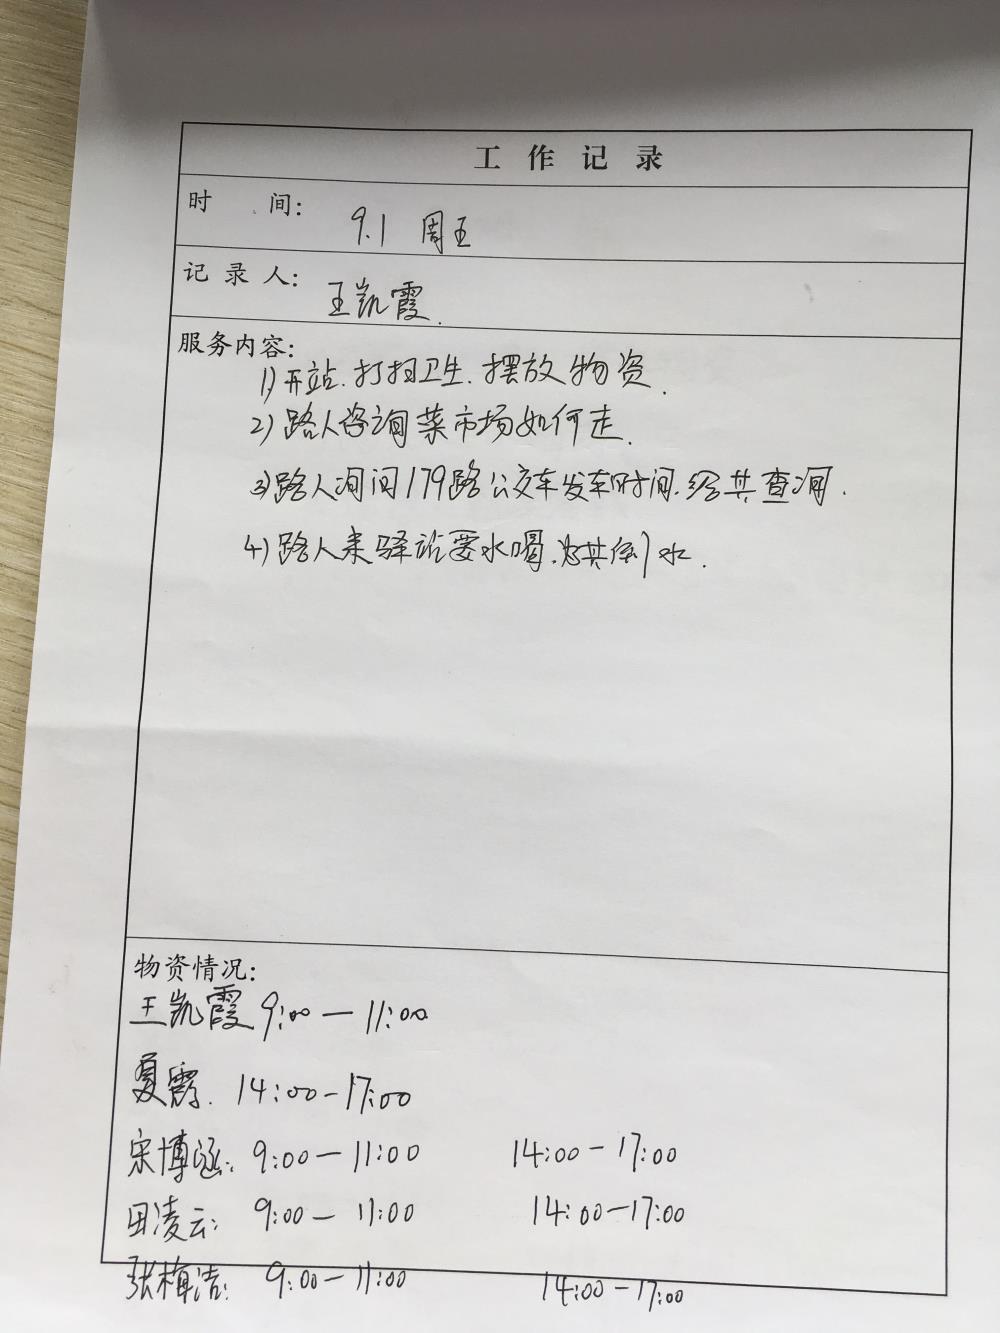 工作记录
时 间： 9.1 周五
记录人： 王凯霞.
服务内容：
1) 开站.打扫卫生.摆放物资.
2) 路人咨询菜市场如何走.
3) 路人询问179路公交车发车时间.给其查询.
4) 路人来驿站要水喝.为其倒水.
物资情况：
王凯霞 9:00—11:00
夏霞. 14:00-17:00
宋博涵: 9:00—11:00 14:00-17:00
田凌云: 9:00— 11:00 14:00—17:00
张梅洁: 9:00—11:00 14:00-17:00